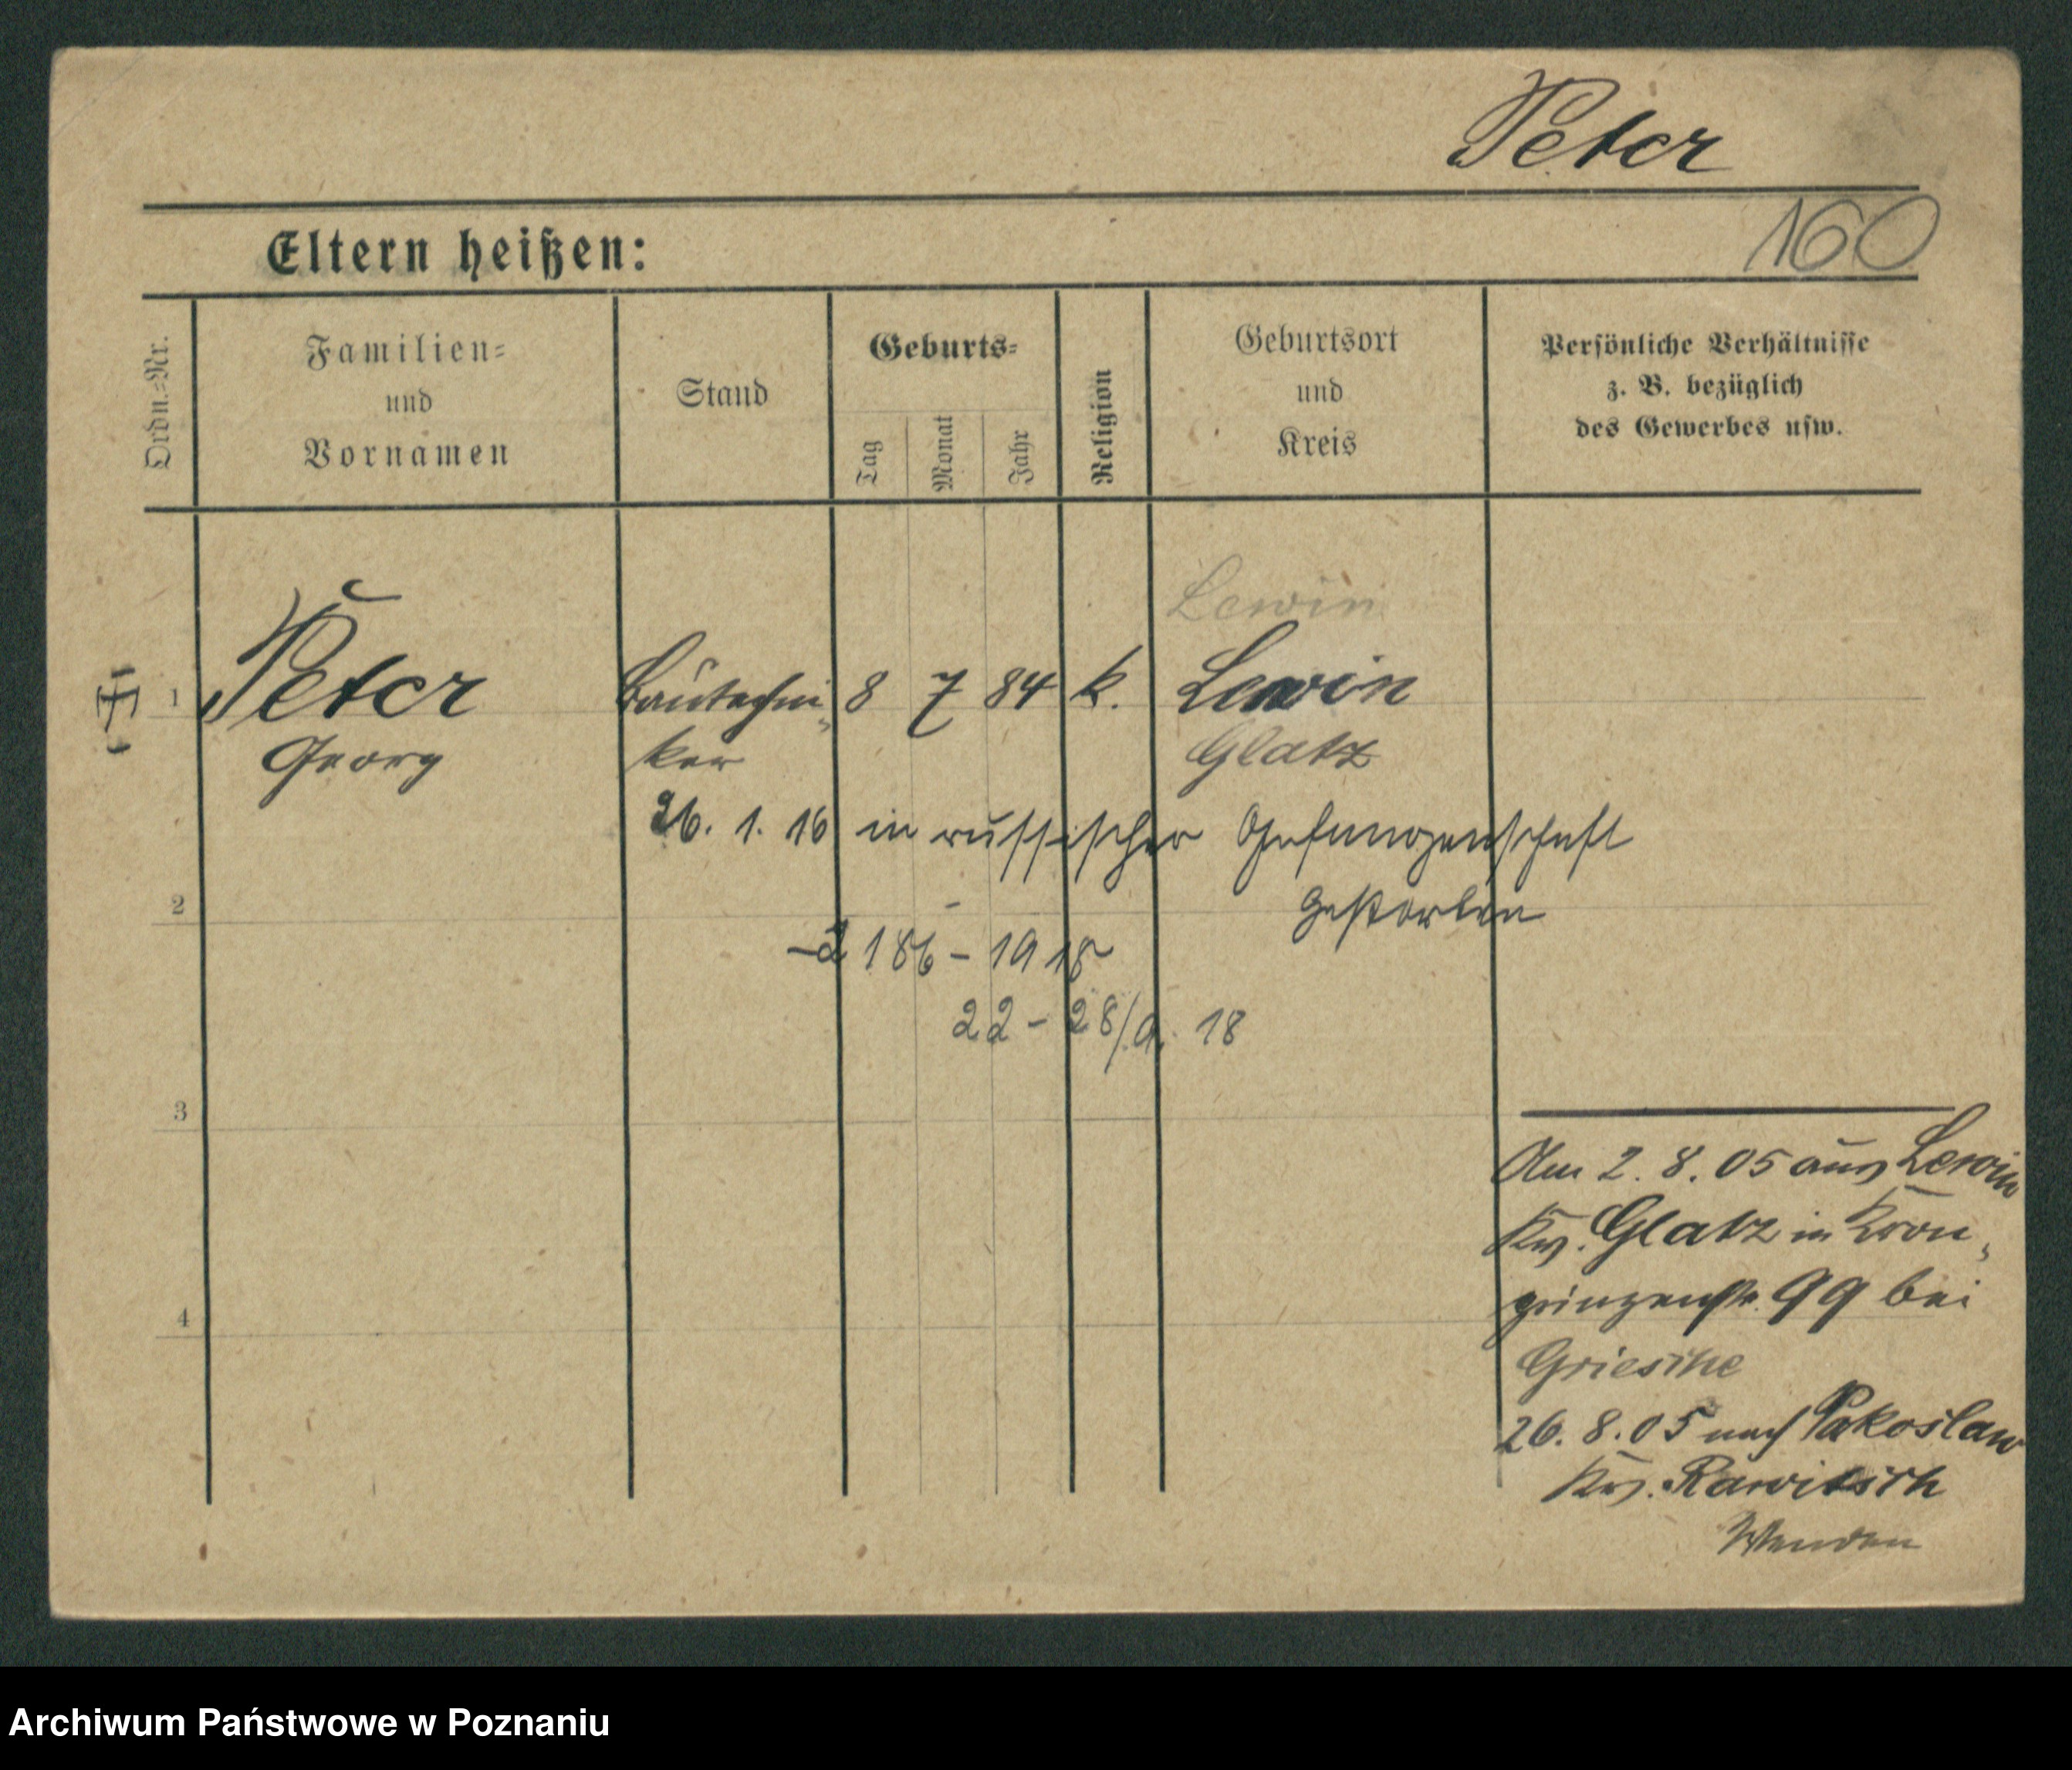 Peter
160
Eltern heißen:
Ordn.-Nr.
Familien-
und
Vornamen
Stand
Geburts-
Tag
Monat
Jahr
Religion
Geburtsort
und
Kreis
Persönliche Verhältnisse
z. B. bezüglich
des Gewerbes usw.
Lewin
1 Peter Bautechni- 8 7 84 k. Lewin
Georg ker Glatz
26. 1. 16 in russischer Gefangenschaft
gestorben
2
186 - 1918
22 - 28/9. 18
3
Am 2. 8. 05 aus Lewin
Krs. Glatz in Kron-
prinzenstr. 99 bei
4
Grieschke
26. 8. 05 nach Pakoslaw
Krs. Rawitsch
Archiwum Państwowe w Poznaniu